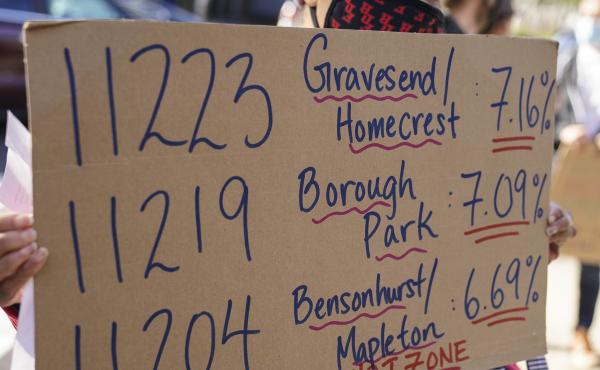 11223 Gravesend/
Homecrest : 7.16%
11219 Borough
Park : 7.09%
11204 Bensonhurst/
Mapleton : 6.69%
ZONE